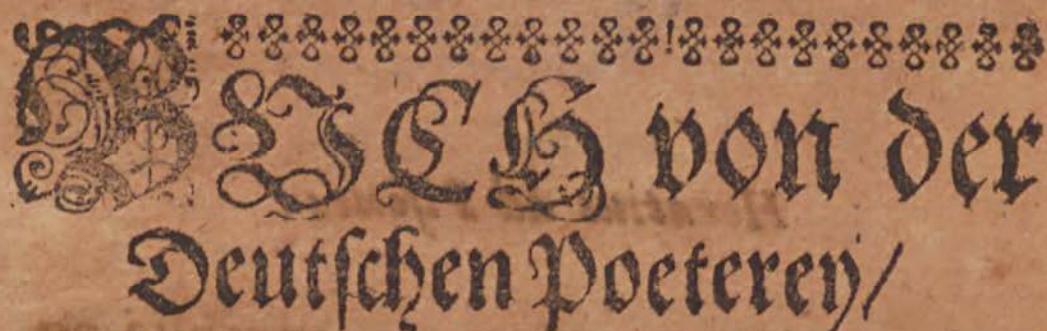 BVCH von der
Deutschen Poeterey/